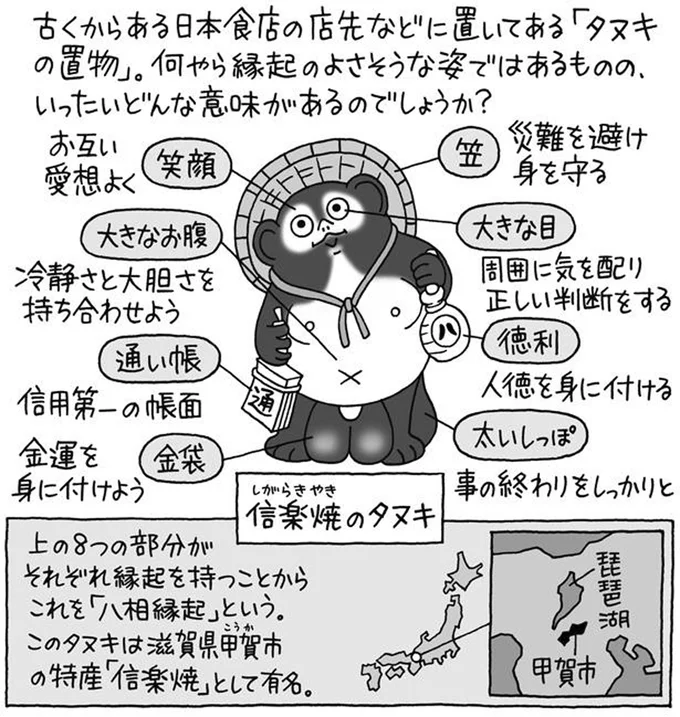 古くからある日本食店の店先などに置いてある「タヌキ
の置物」。何やら縁起のよさそうな姿ではあるものの、
いったいどんな意味があるのでしょうか?
お互い
愛想よく
笑顔
笠
災難を避け
身を守る
大きなお腹
冷静さと大胆さを
持ち合わせよう
大きな目
周囲に気を配り
正しい判断をする
八
徳利
人徳を身に付ける
通い帳
通
信用第一の帳面
金袋
金運を
身に付けよう
太いしっぽ
事の終わりをしっかりと
しがらきやき
信楽焼のタヌキ
上の8つの部分が
それぞれ縁起を持つことから
これを「八相縁起」という。
こうか
このタヌキは滋賀県甲賀市
の特産「信楽焼」として有名。
琵琶湖
甲賀市